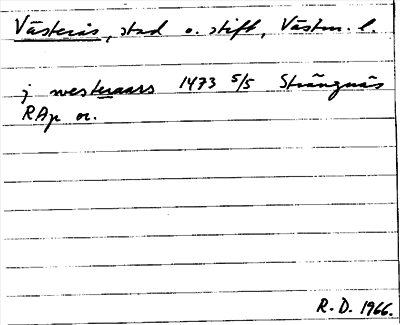 Västerås, stad o. stift, Västm. l.
j westeraars 1473 5/5 Strängnäs
RAp or.
R. D. 1966.